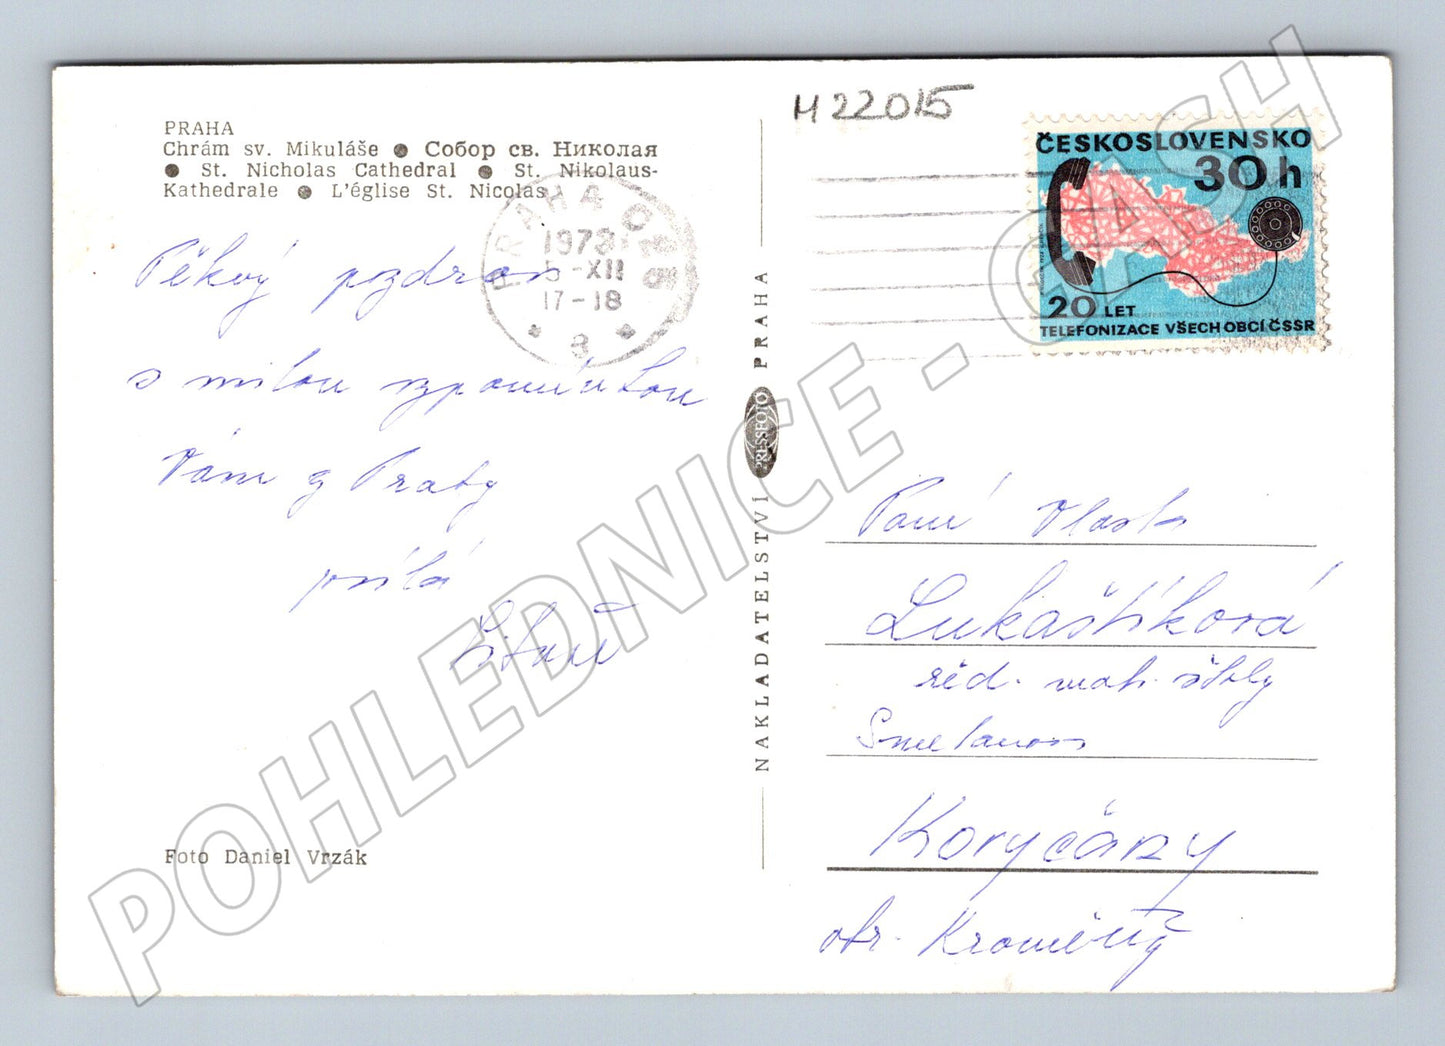 PRAHA
Chrám sv. Mikuláše ● Собор св. Николая
● St. Nicholas Cathedral ● St. Nikolaus-
Kathedrale ● L'église St. Nicolas
Pěkný pozdrav
s milou vzpomínkou
Vám z Prahy
posílá
Foto Daniel Vrzák
PRAHA
1973
5-XII
17-18
* 8 *
NAKLADATELSTVÍ PRESSFOTO PRAHA
M22015
ČESKOSLOVENSKO
30h
20 LET
TELEFONIZACE VŠECH OBCÍ ČSSR
Paní Vlasta
Lukaštíková
řed. mat. školy
Smetanova
Koryčany
okr. Kroměříž
POHLEDNICE - CASH